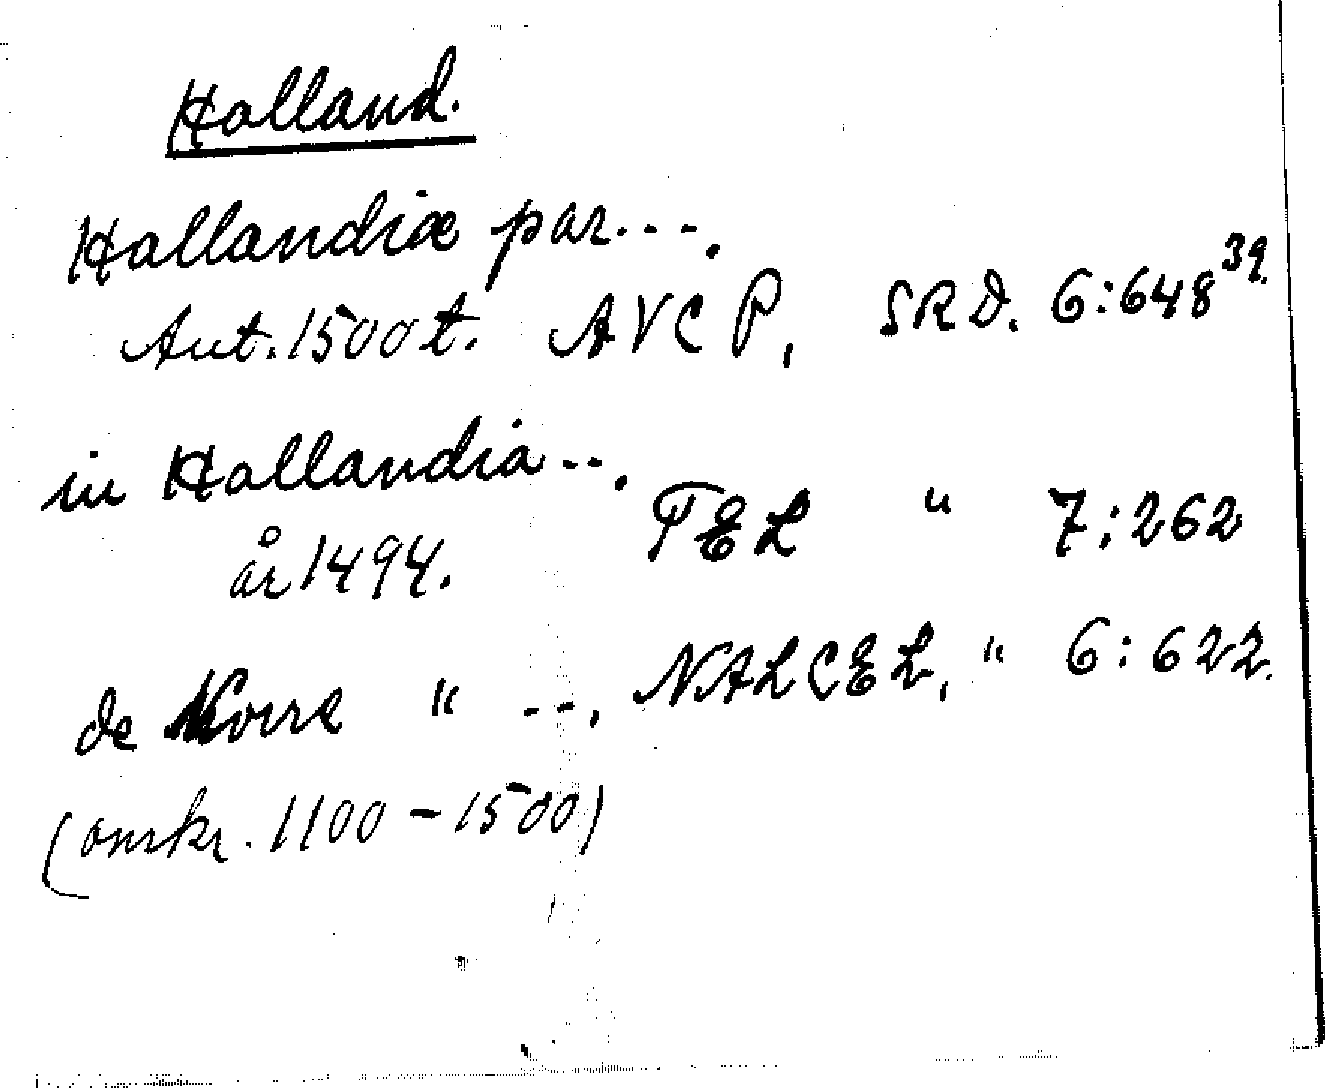 Holland.
Hollandiæ par....
Aut. 1500 t. AVCP, SRD. 6:648 39.
in Hollandia...
år 1494. TEL " 7:262
de " --. NALCEL, " 6:622.
(omkr. 1100-1500)